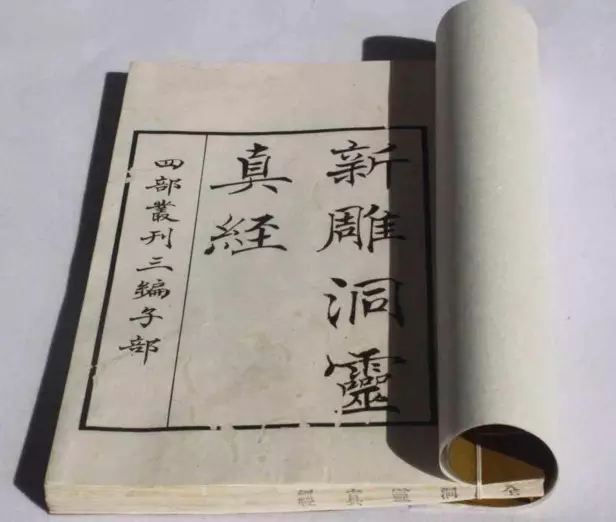 新雕洞靈
真経
四部叢刊三編子部
全
洞
靈
真
經